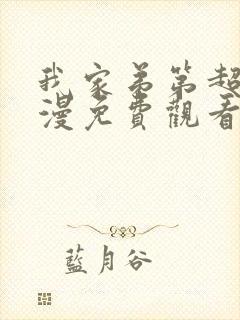 我家弟第超
漫免費觀看
藍月谷